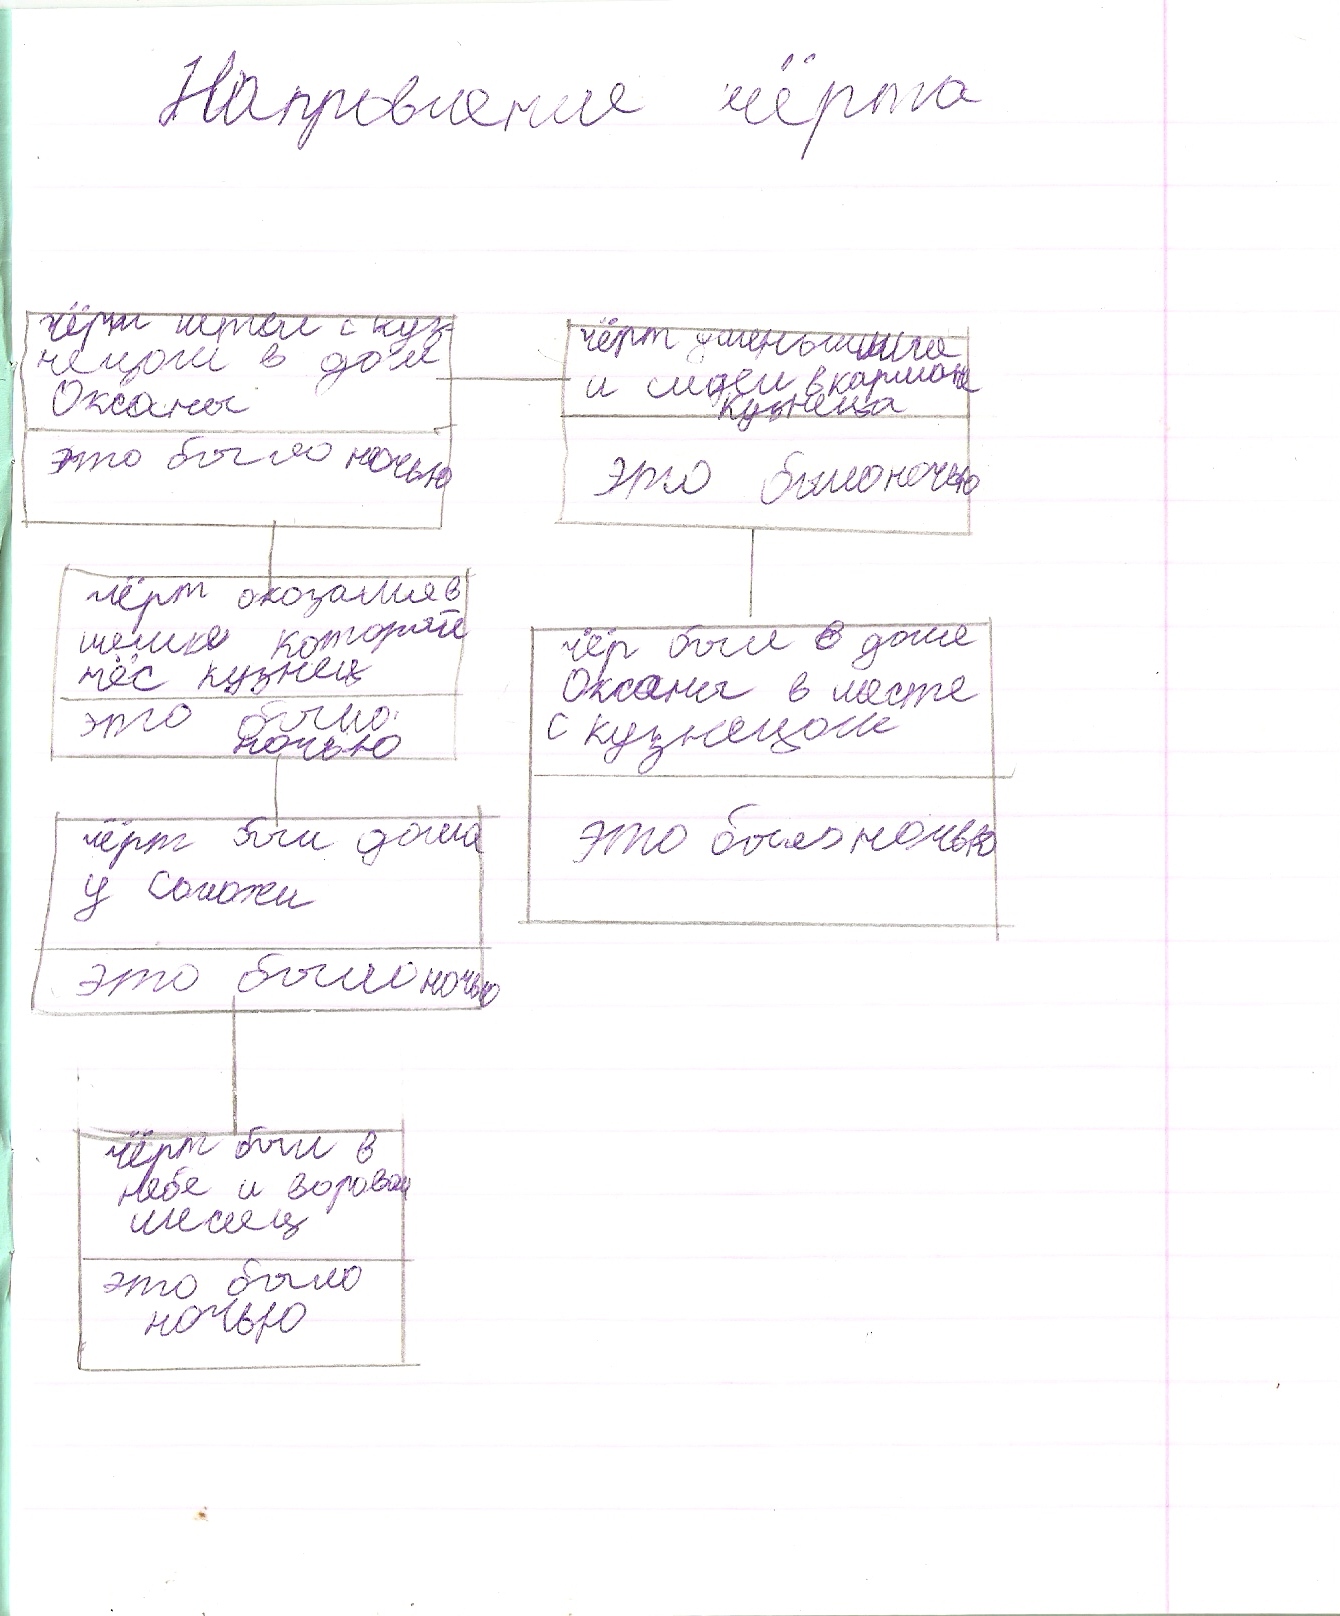 Напровление чёрта
чёрт летел с куз-
нецом в дом
Оксаны
это было ночью
чёрт уменьшился
и сидел в кармане
кузнеца
это было ночью
чёрт оказался в
мешке который
нёс кузнец
это было
ночью
чёр был в доме
Оксаны в месте
с кузнецом
это было ночью
чёрт был дома
у Солохи
это было ночью
чёрт был в
небе и воровал
месяц
это было
ночью